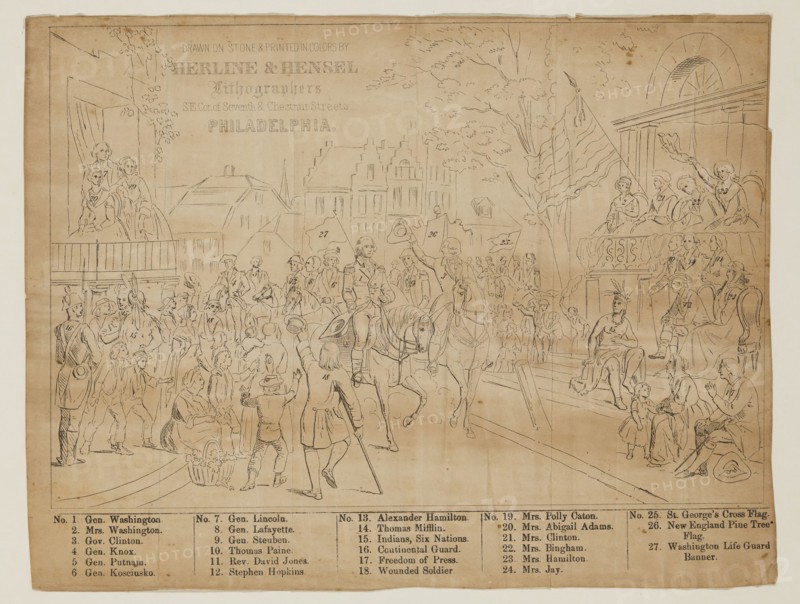 DRAWN ON STONE & PRINTED IN COLOURS BY
HERLINE & HENSEL
Lithographers
S.E. Cor. of Seventh & Chestnut Streets
PHILADELPHIA.
27
26
25.
18
No. 1 Gen. Washington.
2. Mrs. Washington.
3. Gov. Clinton.
4 Gen. Knox.
5 Gen. Putnam.
6 Gen. Kosciusko.
No. 7. Gen. Lincoln.
8. Gen. Lafayette.
9. Gen. Steuben.
10. Thomas Paine.
11. Rev. David Jones.
12. Stephen Hopkins.
No. 13. Alexander Hamilton.
14. Thomas Mifflin.
15. Indians, Six Nations.
16. Continental Guard.
17. Freedom of Press.
18. Wounded Soldier
No. 19. Mrs. Polly Caton.
20. Mrs. Abigail Adams.
21. Mrs. Clinton.
22. Mrs. Bingham.
23 Mrs. Hamilton.
24. Mrs. Jay.
No. 25. St. George's Cross Flag.
26. New England Pine Tree
Flag.
27. Washington Life Guard
Banner.
PHOTO12